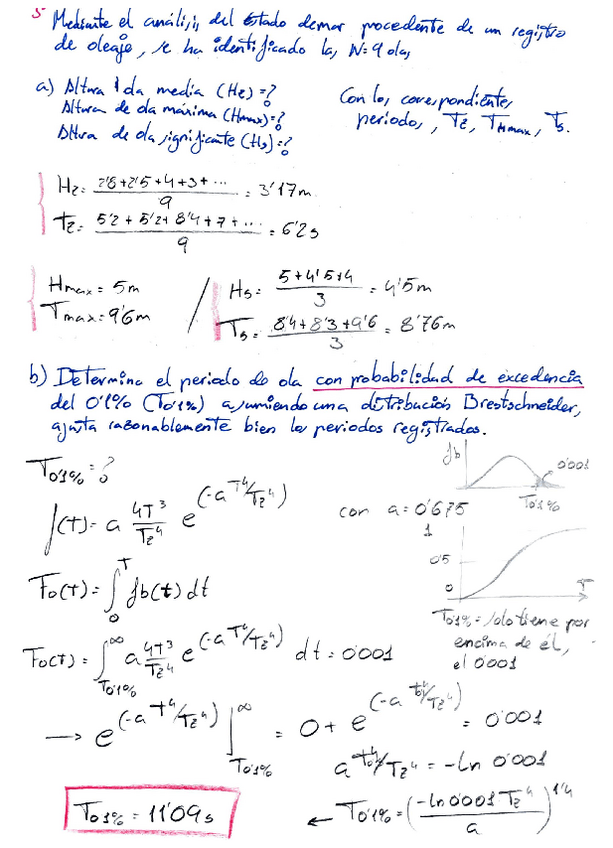 5 Mediante el análisis del estado demar procedente de un registro
de oleaje, se ha identificado las N=9 olas
a) Altura de ola media (Hz)=?
Altura de ola máxima (Hmax)=?
Altura de ola significante (Hs)=?
Con los correspondientes
periodos, Tz, THmax, Ts.
Hz = (2'5+2'5+4+3+...)/9 = 3'17m
Tz = (5'2+5'2+8'4+7+...)/9 = 6'2s
Hmax = 5m
Tmax = 9'6m
/ Hs = (5+4'5+4)/3 = 4'5m
Ts = (8'4+8'3+9'6)/3 = 8'76m
b) Determina el periodo de ola con probabilidad de excedencia
del 0'1% (T0'1%) asumiendo una distribución Brestschneider,
ajusta razonablemente bien los periodos registrados.
T0'1% = ?
f(t) = a 4T³/Tz⁴ e^(-a T⁴/Tz⁴)
con a = 0'675
fb
0'001
T0'1%
1
0'5
0
T
Fo(t) = ∫₀ᵀ fb(t) dt
T0'1% = solo tiene por
encima de él,
el 0'001
Fo(t) = ∫_T0'1%^∞ a 4T³/Tz⁴ e^(-a T⁴/Tz⁴) dt = 0'001
→ e^(-a T⁴/Tz⁴) |_T0'1%^∞ = 0 + e^(-a T0'1⁴/Tz⁴) = 0'001
a T0'1⁴/Tz⁴ = -ln 0'001
← T0'1% = (-ln 0'001 Tz⁴/a)^1/4
T0'1% = 11'09s